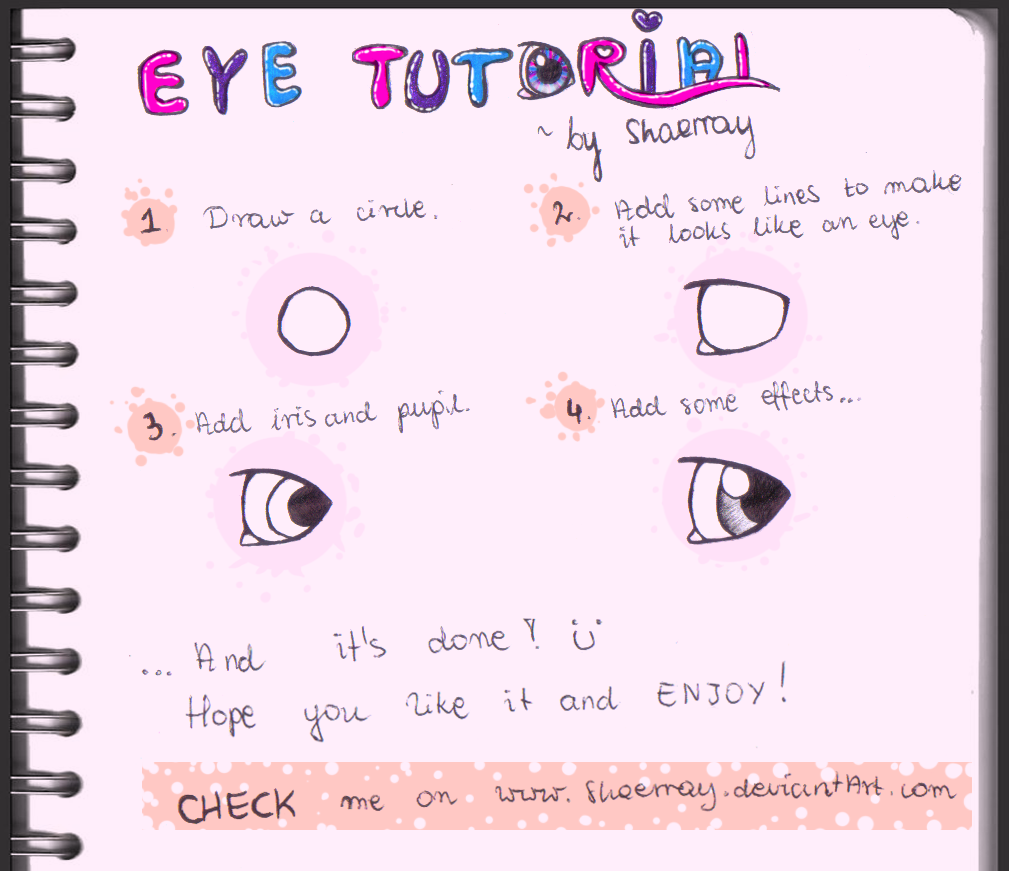 EYE TUTORIAL
~ by Shaerray
1. Draw a circle.
2. Add some lines to make
it looks like an eye.
3. Add iris and pupil.
4. Add some effects...
... And it's done! Ü
Hope you like it and ENJOY!
CHECK me on www.shaerray.deviantArt.com